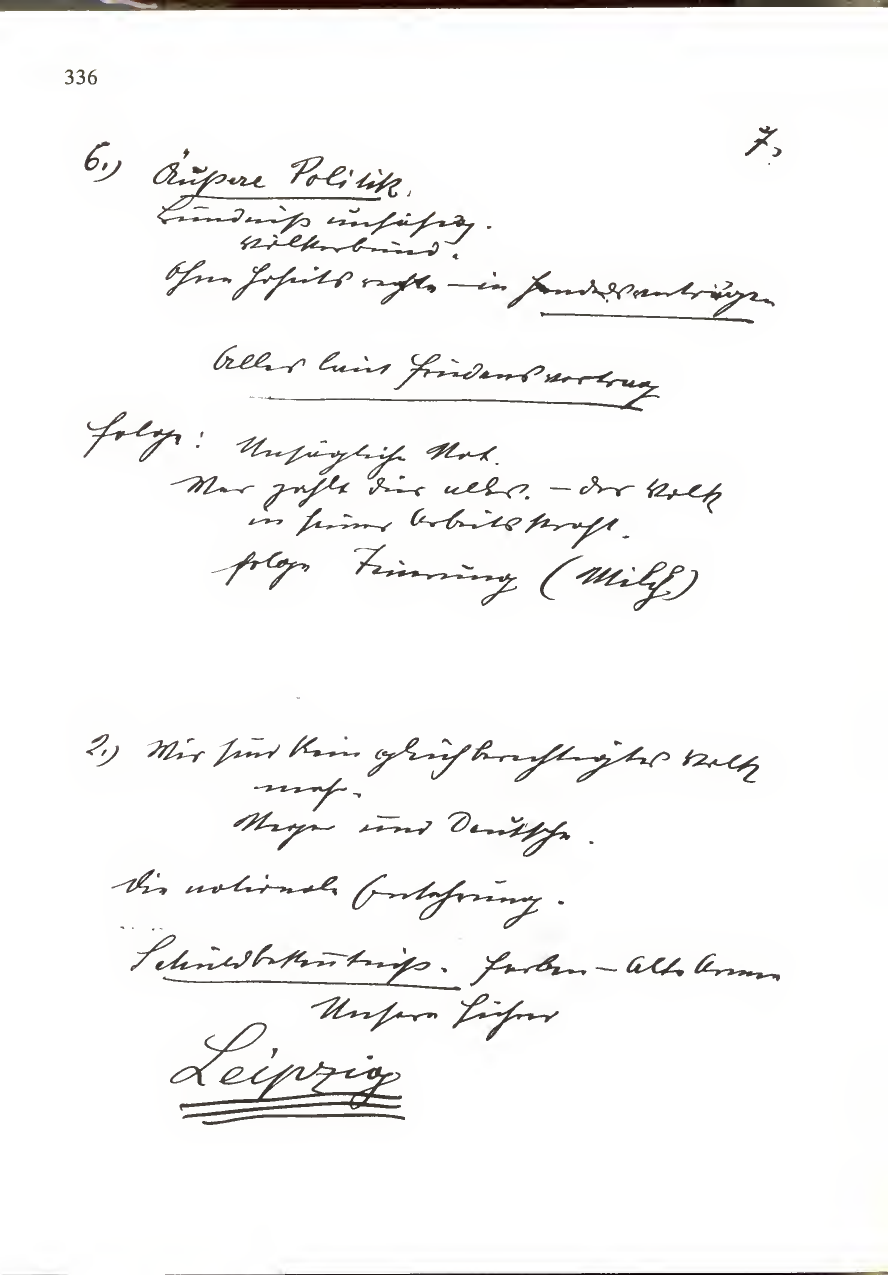 336
7.)
6.) Äußere Politik.
Bündniß unfähig.
Völkerbund.
Ohne Hoheitsrechte – in Handelsverträgen
Alles laut Friedensvertrag
Folge: Unsägliche Not.
Wer zahlt dies alles. – das Volk
in seiner Arbeitskraft.
folge Teuerung (Milch)
2.) Wir sind kein gleichberechtigtes Volk
mehr.
Neger und Deutsche.
Die nationale Entehrung.
Schuldbekentniß. Farben – Alte Armee
Unsere Führer
Leipzig